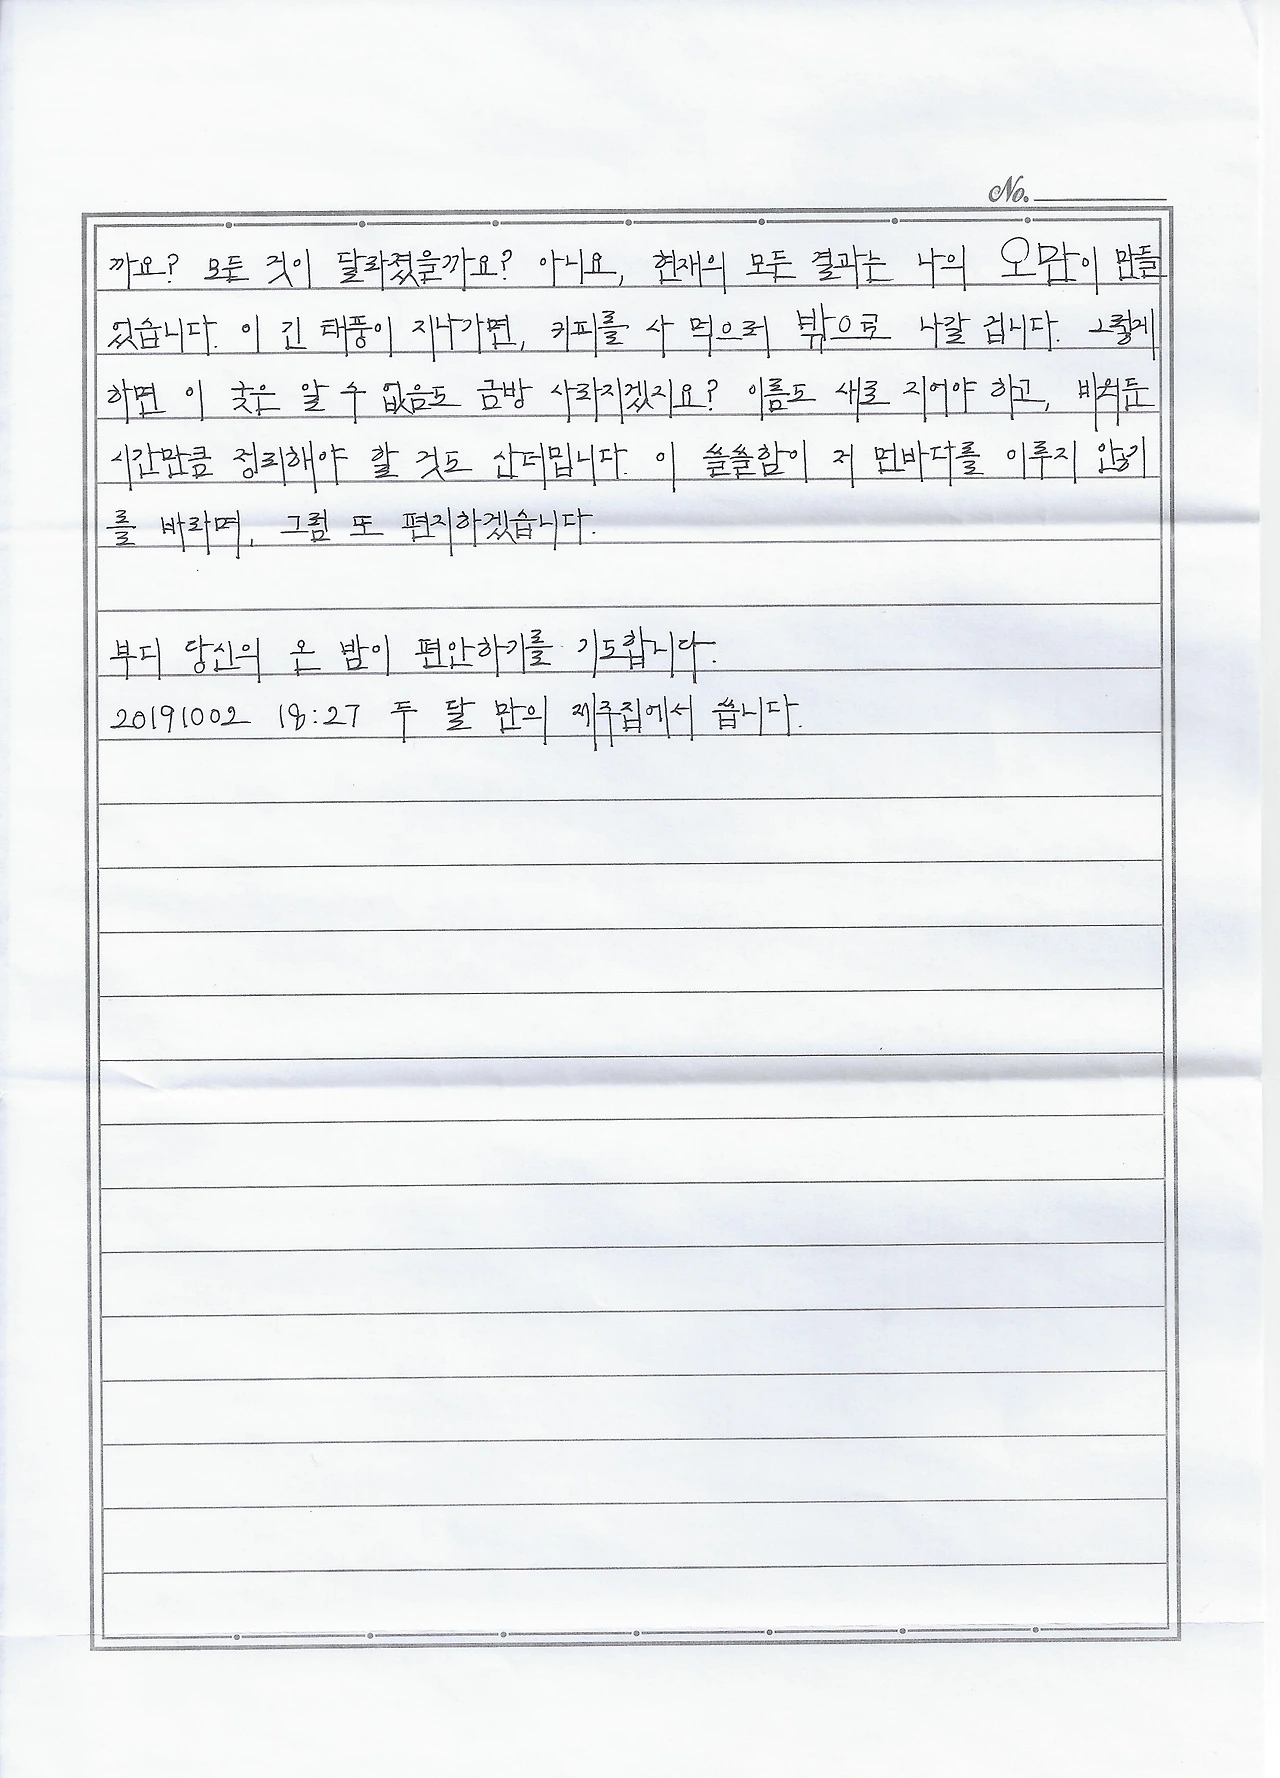 No.
까요? 모든 것이 달라졌을까요? 아니요, 현재의 모든 결과는 나의 오만이 만들
었습니다. 이 긴 태풍이 지나가면, 커피를 사 먹으러 밖으로 나갈 겁니다. 그렇게
하면 이 궂은 알 수 없음도 금방 사라지겠지요? 이름도 새로 지어야 하고, 비워둔
시간만큼 정리해야 할 것도 산더밉니다. 이 쓸쓸함이 저 먼바다를 이루지 않기
를 바라며, 그럼 또 편지하겠습니다.
부디 당신의 온 밤이 편안하기를 기도합니다.
20191002 18:27 두 달 만의 제주집에서 씁니다.